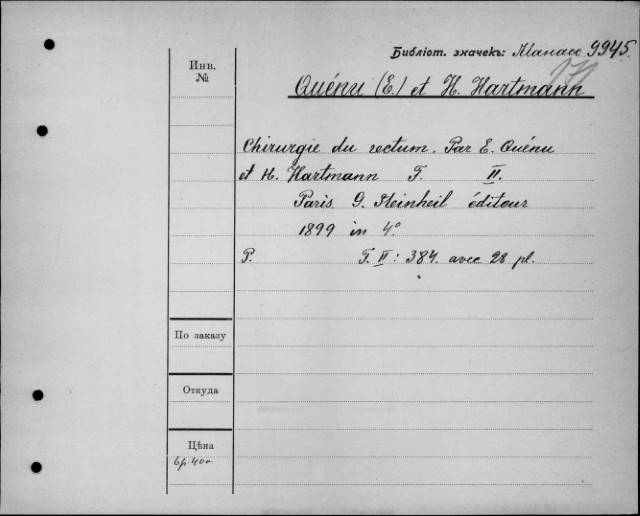 Библіот. значекъ: Manacc 9945.
Инв.
№
Quénu (E.) et H. Hartmann
Chirurgie du rectum. Par E. Quénu
et H. Hartmann T. II.
Paris. G. Steinheil éditeur
1899 in 4°
P. T. II: 384. avec 28 pl.
По заказу
Откуда
Цѣна